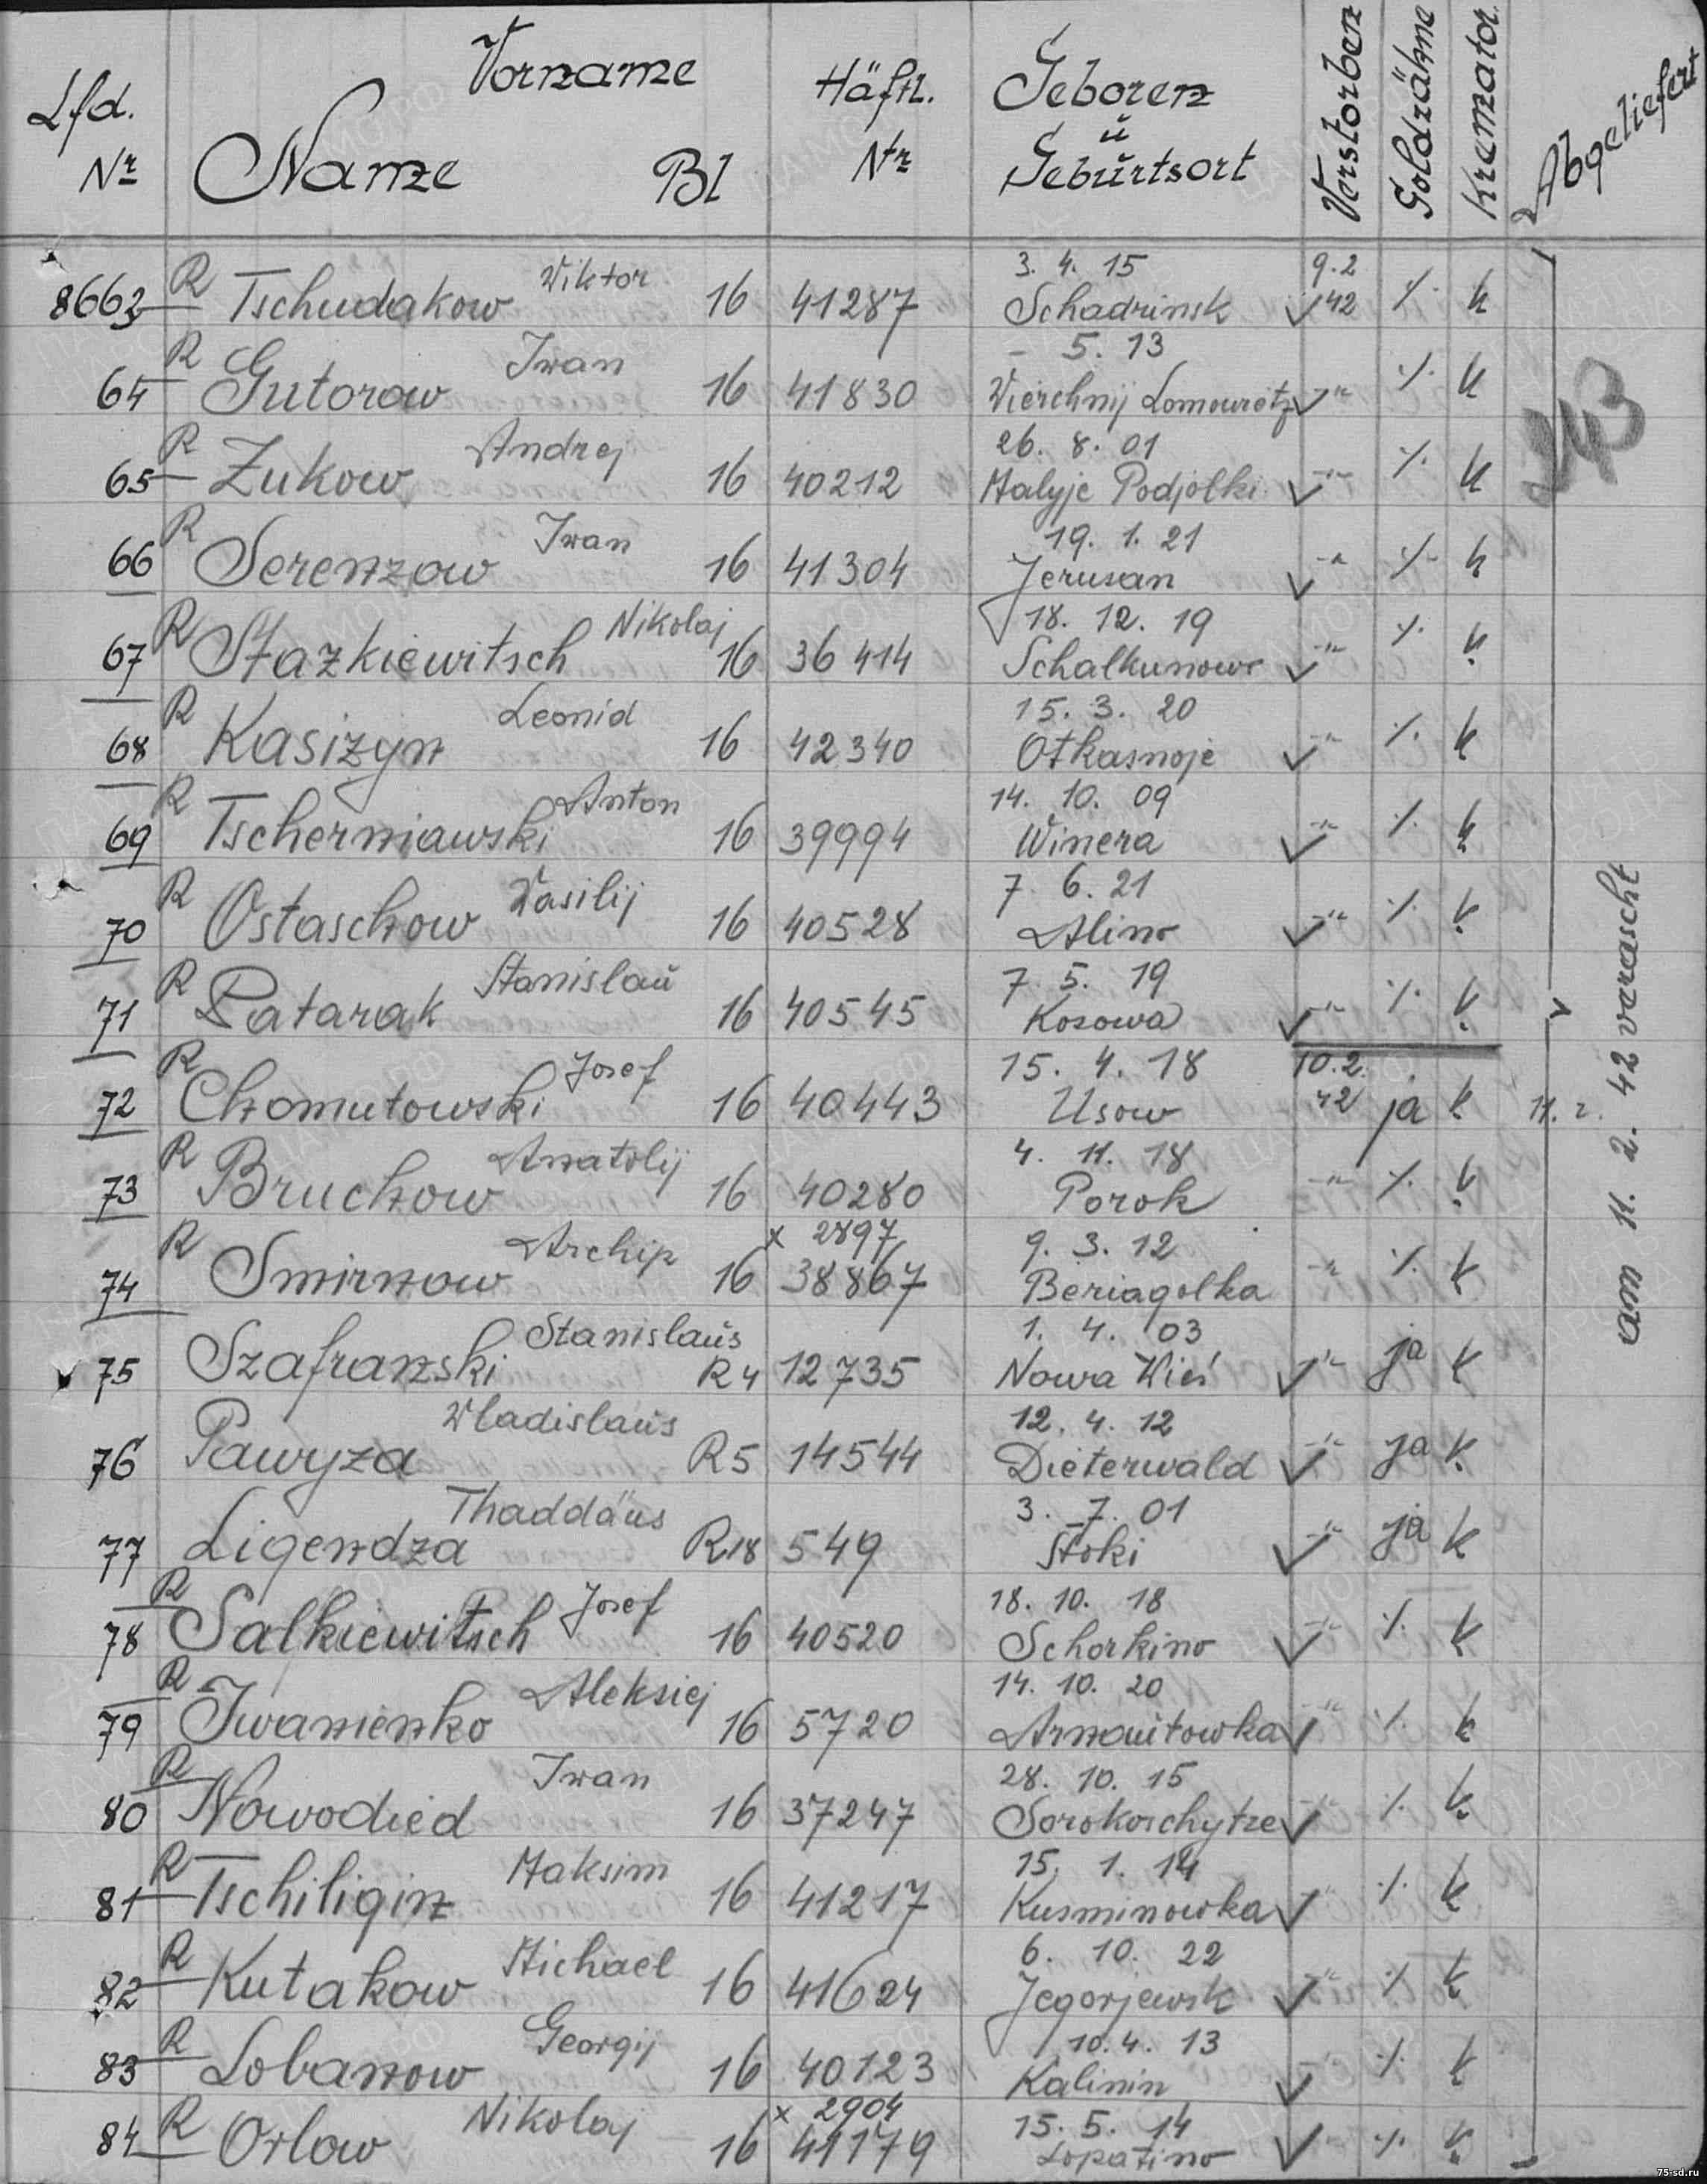 Lfd. Nr Vorname Name Bl Häftl. Nr Geboren u Geburtsort Verstorben Goldzähne Kremator. Abgeliefert
R Wiktor 3. 4. 15 9.2
8663 Tschudakow 16 41287 Schadrinsk ✓ 42 ⁒ k
R Iwan - 5. 13
64 Gutorow 16 41830 Wierchnij Lomowietz ✓ -"- ⁒ k
243
R Andrej 26. 8. 01
65 Zukow 16 40212 Malyje Podjolki ✓ -"- ⁒ k
R Iwan 19. 1. 21
66 Serenzow 16 41304 Jerusan ✓ -"- ⁒ k
R Nikolaj 18. 12. 19
67 Stazkiewitsch 16 36414 Schalkunowo ✓ -"- ⁒ k
R Leonid 15. 3. 20
68 Kasizyn 16 42340 Otkasnoje ✓ -"- ⁒ k
R Anton 14. 10. 09
69 Tscherniawski 16 39994 Winera ✓ -"- ⁒ k
R Wasilij 7. 6. 21
70 Ostaschow 16 40528 Alino ✓ -"- ⁒ k
R Stanislau 7. 5. 19
71 Patarak 16 40545 Kosowa ✓ -"- ⁒ k
R Josef 15. 4. 18 10.2.
72 Chomutowski 16 40443 Usow 42 ja k 11. 2.
R Anatolij 4. 11. 18
73 Bruchow 16 40280 Porok -"- ⁒ k
R Archip x 2897 9. 3. 12
74 Smirnow 16 38867 Beriagolka -"- ⁒ k
am 11. 2. 42 verascht
Stanislaus 1. 4. 03
75 Szafranski R4 12735 Nowa Wieś ✓ -"- ja k
Wladislaus 12. 4. 12
76 Pawyza R5 14544 Dieterwald ✓ -"- ja k
Thaddäus 3. 7. 01
77 Ligendza R18 549 Stoki ✓ -"- ja k
R Josef 18. 10. 18
78 Salkiewitsch 16 40520 Schorkino ✓ -"- ⁒ k
R Aleksiej 14. 10. 20
79 Iwanienko 16 5720 Arnautowka ✓ -"- ⁒ k
R Iwan 28. 10. 15
80 Nowodied 16 37247 Sorokoschytze ✓ -"- ⁒ k
R Maksim 15. 1. 14
81 Tschiligin 16 41217 Kusminowka ✓ -"- ⁒ k
R Michael 6. 10. 22
82 Kutakow 16 41624 Jegorjewsk ✓ -"- ⁒ k
R Georgij 10. 4. 13
83 Lobanow 16 40123 Kalinin ✓ -"- ⁒ k
R Nikolaj x 2904 15. 5. 14
84 Orlow 16 41179 Lopatino ✓ ⁒ k
75-sd.ru